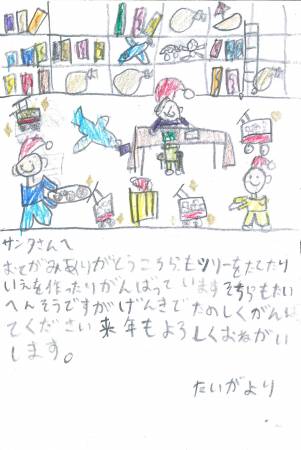 サンタさんへ
おてがみありがとうこちらもツリーをたてたり
いえを作ったりがんばって います そちらもたい
へんそうですが げんきで たのしくがんばっ
てください 来年もよろしくおねがい
します。
たいがより